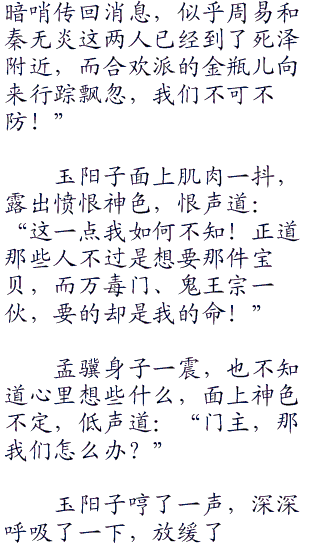 暗哨传回消息，似乎周易和
秦无炎这两人已经到了死泽
附近，而合欢派的金瓶儿向
来行踪飘忽，我们不可不
防！”
玉阳子面上肌肉一抖，
露出愤恨神色，恨声道：
“这一点我如何不知！正道
那些人不过是想要那件宝
贝，而万毒门、鬼王宗一
伙，要的却是我的命！”
孟骥身子一震，也不知
道心里想些什么，面上神色
不定，低声道：“门主，那
我们怎么办？”
玉阳子哼了一声，深深
呼吸了一下，放缓了